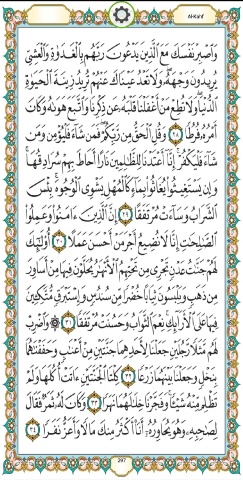 Al-Kahf
وَاصْبِرْ نَفْسَكَ مَعَ الَّذِينَ يَدْعُونَ رَبَّهُم بِالْغَدَاةِ وَالْعَشِيِّ
يُرِيدُونَ وَجْهَهُ وَلَا تَعْدُ عَيْنَاكَ عَنْهُمْ تُرِيدُ زِينَةَ الْحَيَاةِ
الدُّنْيَا وَلَا تُطِعْ مَنْ أَغْفَلْنَا قَلْبَهُ عَن ذِكْرِنَا وَاتَّبَعَ هَوَاهُ وَكَانَ
أَمْرُهُ فُرُطًا ٢٨ وَقُلِ الْحَقُّ مِن رَّبِّكُمْ فَمَن شَاءَ فَلْيُؤْمِن وَمَن
شَاءَ فَلْيَكْفُرْ إِنَّا أَعْتَدْنَا لِلظَّالِمِينَ نَارًا أَحَاطَ بِهِمْ سُرَادِقُهَا
وَإِن يَسْتَغِيثُوا يُغَاثُوا بِمَاءٍ كَالْمُهْلِ يَشْوِي الْوُجُوهَ بِئْسَ
الشَّرَابُ وَسَاءَتْ مُرْتَفَقًا ٢٩ إِنَّ الَّذِينَ ءَامَنُوا وَعَمِلُوا
الصَّالِحَاتِ إِنَّا لَا نُضِيعُ أَجْرَ مَنْ أَحْسَنَ عَمَلًا ٣٠ أُولَٰئِكَ
لَهُمْ جَنَّاتُ عَدْنٍ تَجْرِي مِن تَحْتِهِمُ الْأَنْهَارُ يُحَلَّوْنَ فِيهَا مِنْ أَسَاوِرَ
مِن ذَهَبٍ وَيَلْبَسُونَ ثِيَابًا خُضْرًا مِّن سُندُسٍ وَإِسْتَبْرَقٍ مُّتَّكِئِينَ
فِيهَا عَلَى الْأَرَائِكِ نِعْمَ الثَّوَابُ وَحَسُنَتْ مُرْتَفَقًا ٣١ ۞ وَاضْرِبْ
لَهُم مَّثَلًا رَّجُلَيْنِ جَعَلْنَا لِأَحَدِهِمَا جَنَّتَيْنِ مِنْ أَعْنَابٍ وَحَفَفْنَاهُمَا
بِنَخْلٍ وَجَعَلْنَا بَيْنَهُمَا زَرْعًا ٣٢ كِلْتَا الْجَنَّتَيْنِ ءَاتَتْ أُكُلَهَا وَلَمْ
تَظْلِم مِّنْهُ شَيْئًا وَفَجَّرْنَا خِلَالَهُمَا نَهَرًا ٣٣ وَكَانَ لَهُ ثَمَرٌ فَقَالَ
لِصَاحِبِهِ وَهُوَ يُحَاوِرُهُ أَنَا أَكْثَرُ مِنكَ مَالًا وَأَعَزُّ نَفَرًا ٣٤
297